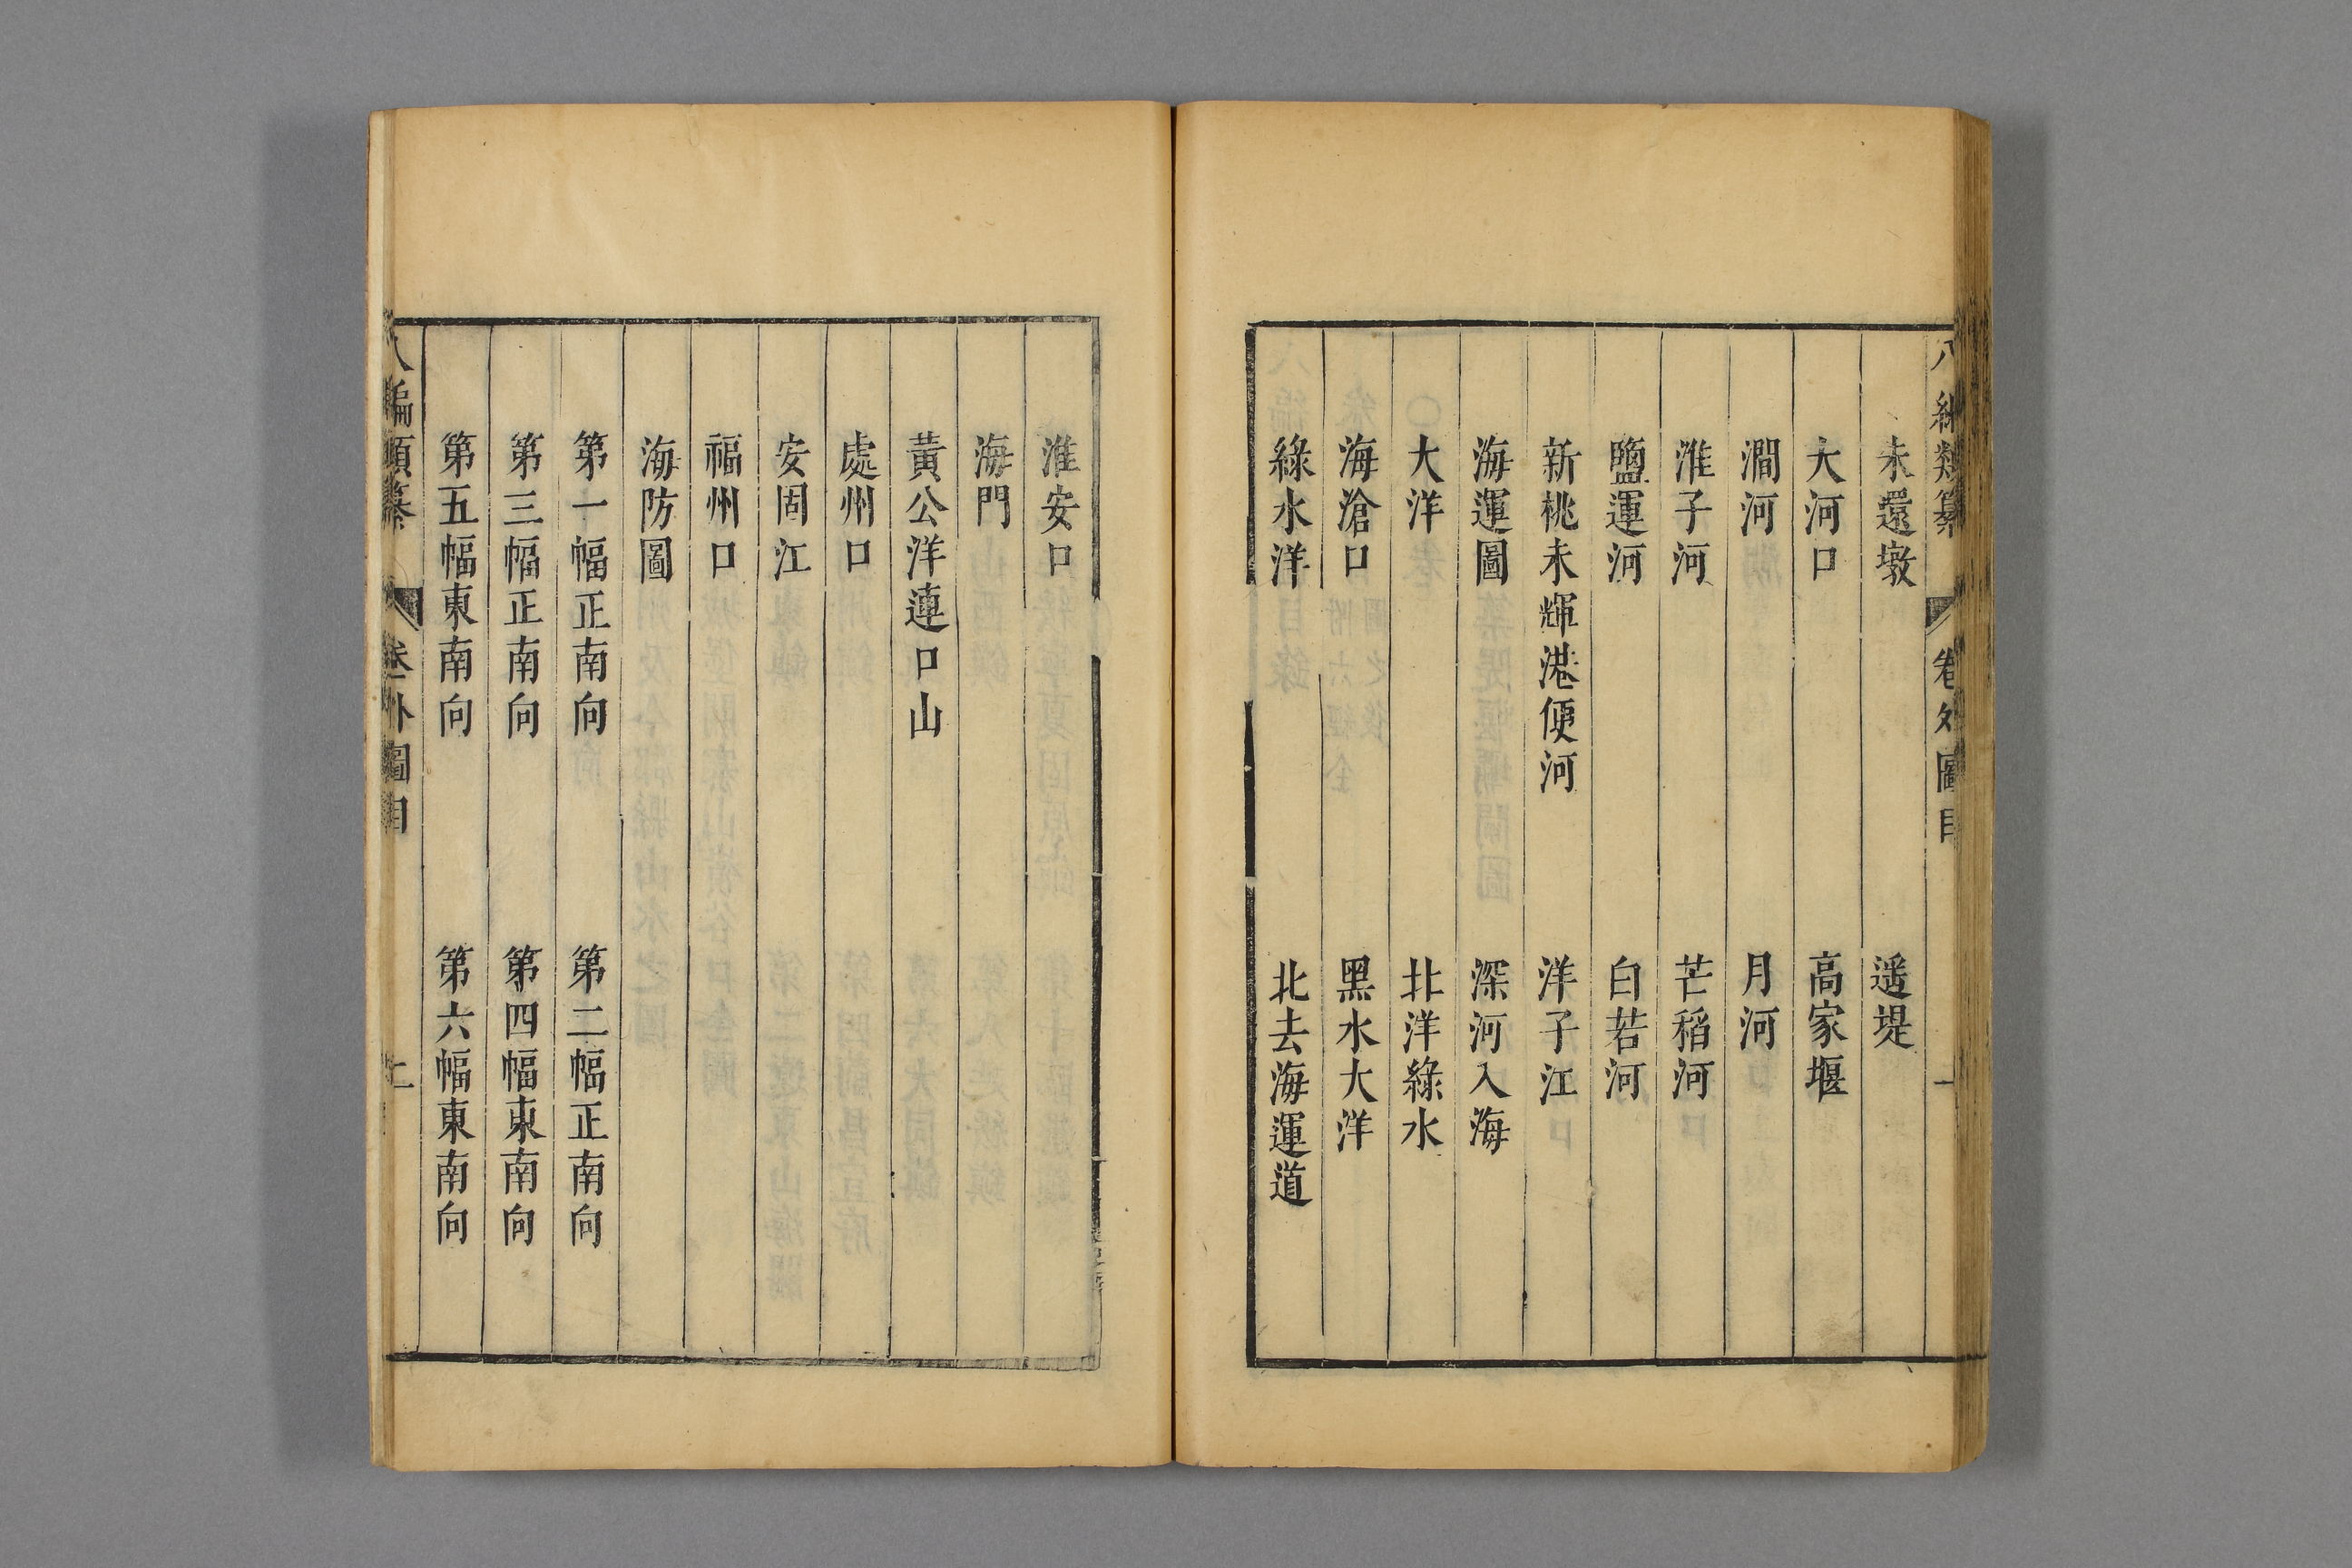 八編類纂 卷外圖目 一
未還墩 遥堤
大河口 高家堰
澗河 月河
淮子河 芒稻河
鹽運河 白若河
新桃未輝港便河 洋子江
海運圖 深河入海
大洋 北洋綠水
海滄口 黑水大洋
綠水洋 北去海運道
淮安口
海門
黃公洋連口山
處州口
安固江
福州口
海防圖
第一幅正南向 第二幅正南向
第三幅正南向 第四幅東南向
第五幅東南向 第六幅東南向
八編類纂 卷外圖目